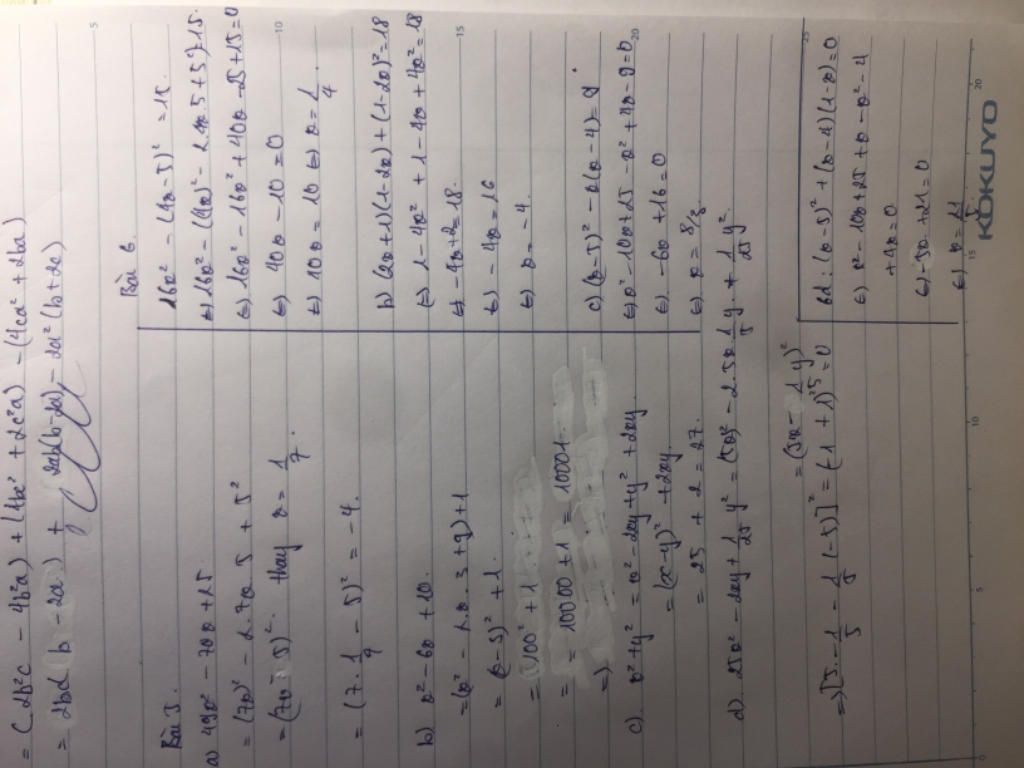 = (2b²c - 4b²a) + (4bc² + 2c²a) - (4ca² + 2ba)
= 2bd (b - 2a) + 2cb(b - 2c) - 2a² (b + 2c)
Bài 5.
a) 49x² - 70x + 25.
= (7x)² - 2.7x.5 + 5²
= (7x - 5)². thay x = 1/7.
= (7. 1/7 - 5)² = -4.
b) x² - 6x + 10.
= (x² - 2.x.3 + 9) + 1
= (x - 3)² + 1.
= 100² + 1.
= 10000 + 1 = 10001.
=)
c) x² + y² = x² - 2xy + y² + 2xy.
= (x - y)² + 2xy.
= 25 + 2 = 27.
d). 25x² - 2xy + 1/25 y² = (5x)² - 2.5x 1/5 y. + 1/25 y².
= (5x - 1/5 y)²
=) [5. - 1/5 - 1/5 (-5)]² = (-1 + 1)² = 0
Bài 6.
16x² - (4x - 5)² = 15.
(=) 16x² - (4x)² - 2.4x.5 + 5²) = 15.
(=) 16x² - 16x² + 40x - 25 + 15 = 0
(=) 40x - 10 = 0
(=) 10x = 10 (=) x = 1/4.
b) (2x + 1)(1 - 2x) + (1 - 2x)² = 18
(=) 1 - 4x² + 1 - 4x + 4x² = 18
(=) - 4x + 2 = 18.
(=) - 4x = 16
(=) x = - 4.
c) (x - 5)² - x(x - 4) = 9.
(=) x² - 10x + 25 - x² + 4x - 9 = 0
(=) - 6x + 16 = 0
(=) x = 8/3.
6d: (x - 5)² + (x - 4)(1 - x) = 0
(=) x² - 10x + 25 + x - x² - 4
+ 4x = 0
(=) - 5x + 21 = 0
(=) x = 21/5.
KOKUYO
5
10
15
20
25
0
5
10
15
20